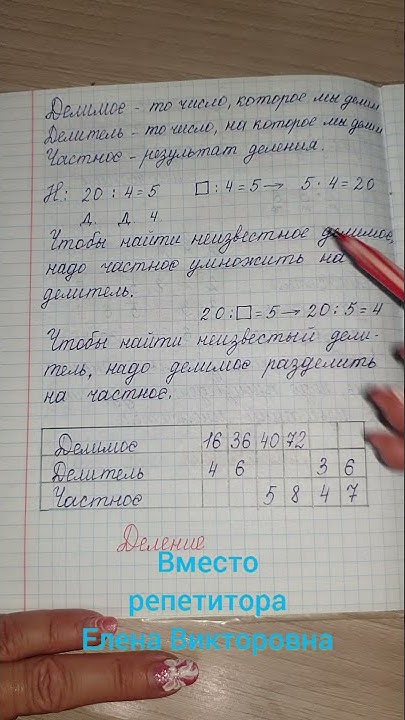 Делимое - то число, которое мы делим
Делитель - то число, на которое мы делим
Частное - результат деления.
Н: 20 : 4 = 5 □ : 4 = 5 → 5 · 4 = 20
Д. Д. Ч
Чтобы найти неизвестное делимое,
надо частное умножить на
делитель.
20 : □ = 5 → 20 : 5 = 4
Чтобы найти неизвестный дели-
тель, надо делимое разделить
на частное.
Делимое 16 36 40 72
Делитель 4 6 3 6
Частное 5 8 4 7
Деление
Вместо
репетитора
Елена Викторовна